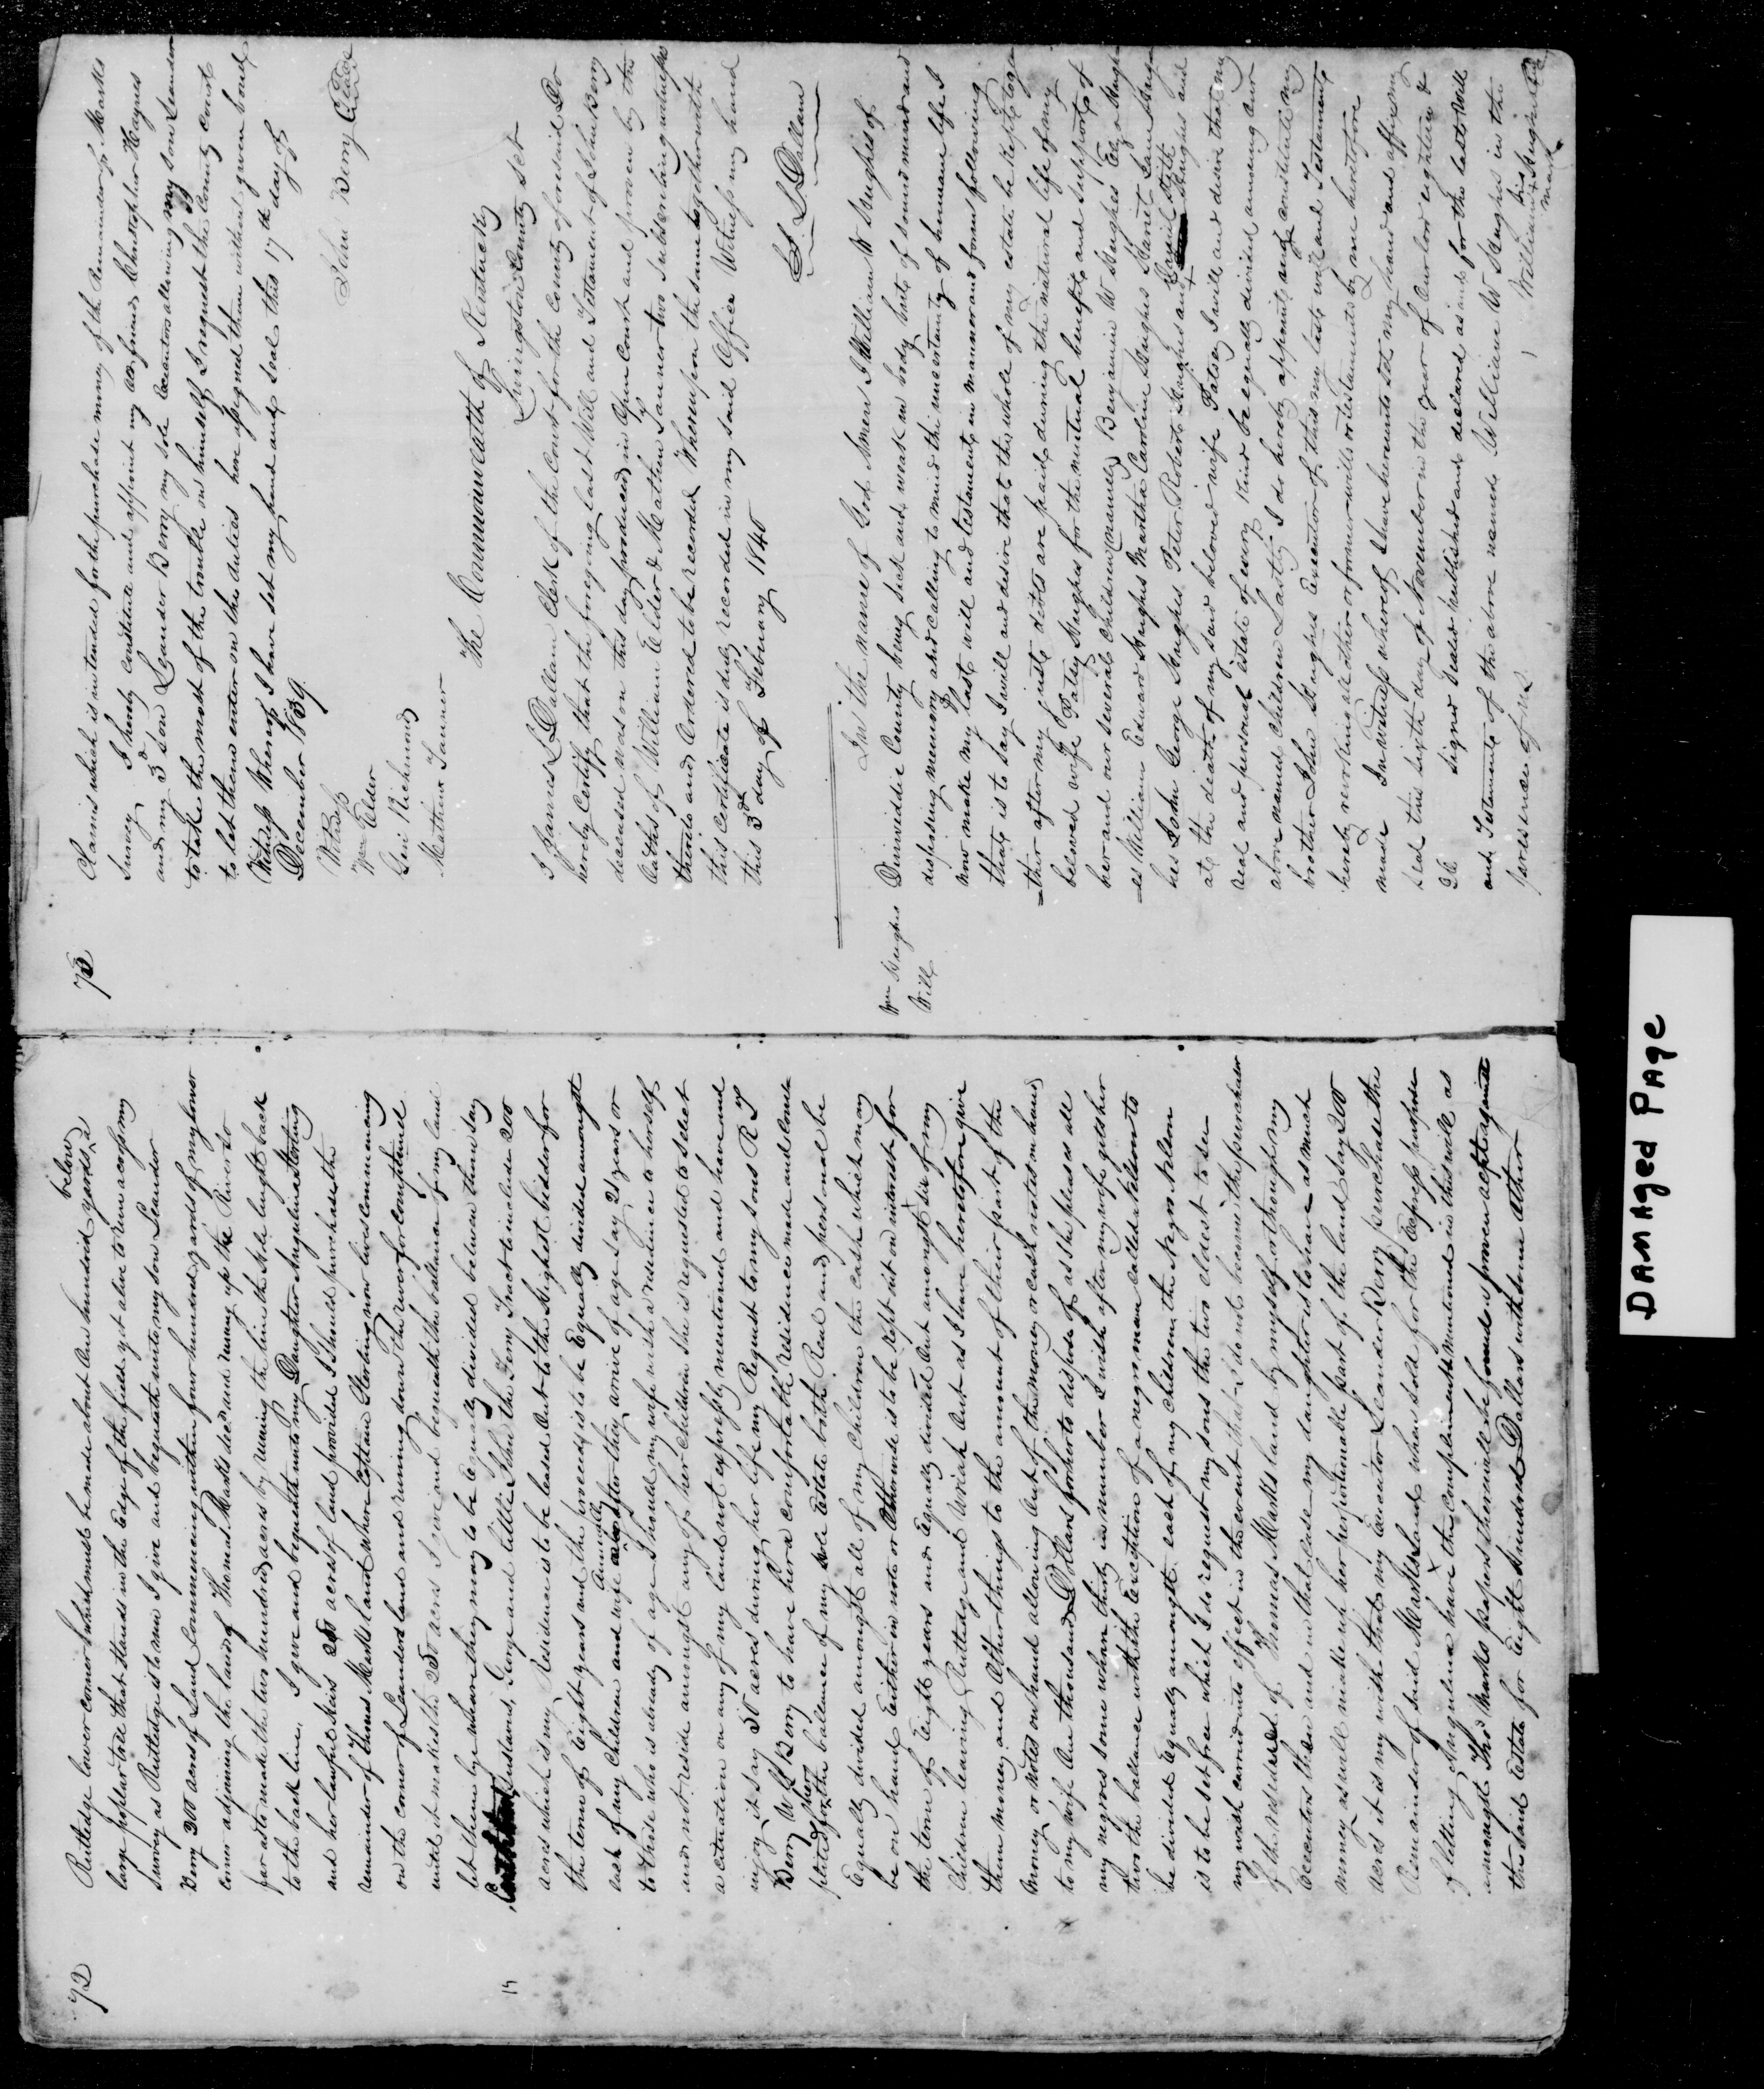 72
Rutledge lower corner which must be made about One hundred yards below a
large poplar tree that stands in the Edge of the field yet alive to run across my
Survey as Rutledge is to run I give and bequeath unto my son Leander
Berry 200 acres of Land Commencing within four hundred yards of my lower
Corner adjoining the land of Thomas Marks decd and runing up the River so
far as to made the two hundred acres by runing the line the sole lenght back
to the back line. I give and bequeath unto my Daughter Angulina Sterling
and her lawful heirs 250 acres of land provided I Should purchase the
remainder of Thomas Marks land where Captain Sterling now lives commencing
on the corner of Leanders land and runing down the river for compliment
until it makes the 250 acres I give and beneath the ballance of my land
let them be where they may to be Equally divided between them say
Sudland, George and little John the Ferry Tract to include 200
acres which is my Residence is to be leased Out to the Highest bidder for
the term of Eight years and the proceeds is to be Equally divided amongst
each of my Children and wife Annually after they arive of age say 21 years or
to those who is already of age Should my wife wish a residence to herself
and not reside amongst any of her Children She is requested to select
a cituation on any of my land not expressly mentioned and have and
injoy it say 50 acres during her life my Request to my sons R T
Berry W H Berry to have her a comfortable residence made and Com
pleted for her the ballance of my sole Estate both Real and personal be
Equally divided amongst all of my Children the cash which may
be on hand Either in note or Otherwise is to be kept out on interest for
the term of Eight years and Equally divided Out amongst six of my
Children leaving Rutledge and Uriah Out as I have heretofore give
them money and Other things to the amount of their part of the
Money or Notes on hand allowing Out of the money or cash notes on hand
to my wife One thousand Dollars for her to dispose of as She pleases all
my negros some where thirty in number I wish after my wife gits her
third the ballance with the Exception of a negro man called Nelson to
be divided Equally amongst each of my Children the Negro Nelson
is to be set free which I do request my sons the two eldest to see
my wish carried into effect in the event that I do not become the purchaser
of the residue of Thomas Marks land by myself or through my
Executors then and in that Case my daughter is to have as much
money as will make up her proportionable part of the land say 200
acres it is my wish that my Executor Leander Berry purchase the
Remainder of said Marks Land when sold for the Express purpose
of letting Angulina have the compliment mentioned in this will as
amongst Thos Marks papers there will be found a proven acpt against
the said Estate for Eight hundred Dollars with some Other
73
Claims which is intended for the purchase money of the Remainder of Marks
Survey I hereby constitute and appoint my confriend Christopher Haynes
and my 3d Son Leander Berry my sole Executors allowing my son Leander
to take the most of the trouble on himself, I request the County Court
to let them enter on the duties here assigned them without given bond
Witness Whereof I have set my hand and seal this 17th day of
December 1839
John Berry Seal
Witness
Wm Elder
Levi Richmond
Mathew Tanner
The Commonwealth of Kentucky
Livingston County Sct
I James L Dallam Clerk of the Court for the County aforesaid Do
hereby Certify that the foregoing last Will and Testament of John Berry
deceased was on this day produced in Open Court and proven by the
Oaths of William Elder & Mathew Tanner two Subscribing witnesses
thereto and Ordered to be recorded Whereupon the same together with
this Certificate is duly recorded in my said Office Witness my hand
this 3d day of February 1840
J L Dallam
Wm Hughes
Will
In the name of God Amen I William W Hughes of
Dinwiddie County being sick and weak in body but of sound mind and
disposing memory and calling to mind the uncertainty of human life I
now make my last will and testament in manner and form following
that is to say I will and desire that the whole of my estate be kept toge
=ther after my just debts are paid during the natural life of my
beloved wife Patsy Hughes for the mutual benefit and support of
her and our several children (namely) Benjamin W Hughes Edgar Hugh
=es William Edward Hughes Martha Caroline Hughes Harriet Jane Hug
hes John George Hughes Peter Robert Hughes and Hughes and
at the death of my said beloved wife Patsy I will and desire that my
real and personal estate of every kind be equally divided among our
above named children Lastly I do hereby appoint and constitute my
brother John Hughes Executor of this my last will and Testament
hereby revoking all other or former wills or testaments by me heretofore
made In witness whereof I have hereunto set my hand and affix my
seal this sixth day of November in the year of Our Lord eighteen &
26 Signed Sealed published and declared as and for the last will
and Testament of the above named William W Hughes in the
presence of us
William his X mark Hughes
DAMAGED PAGE